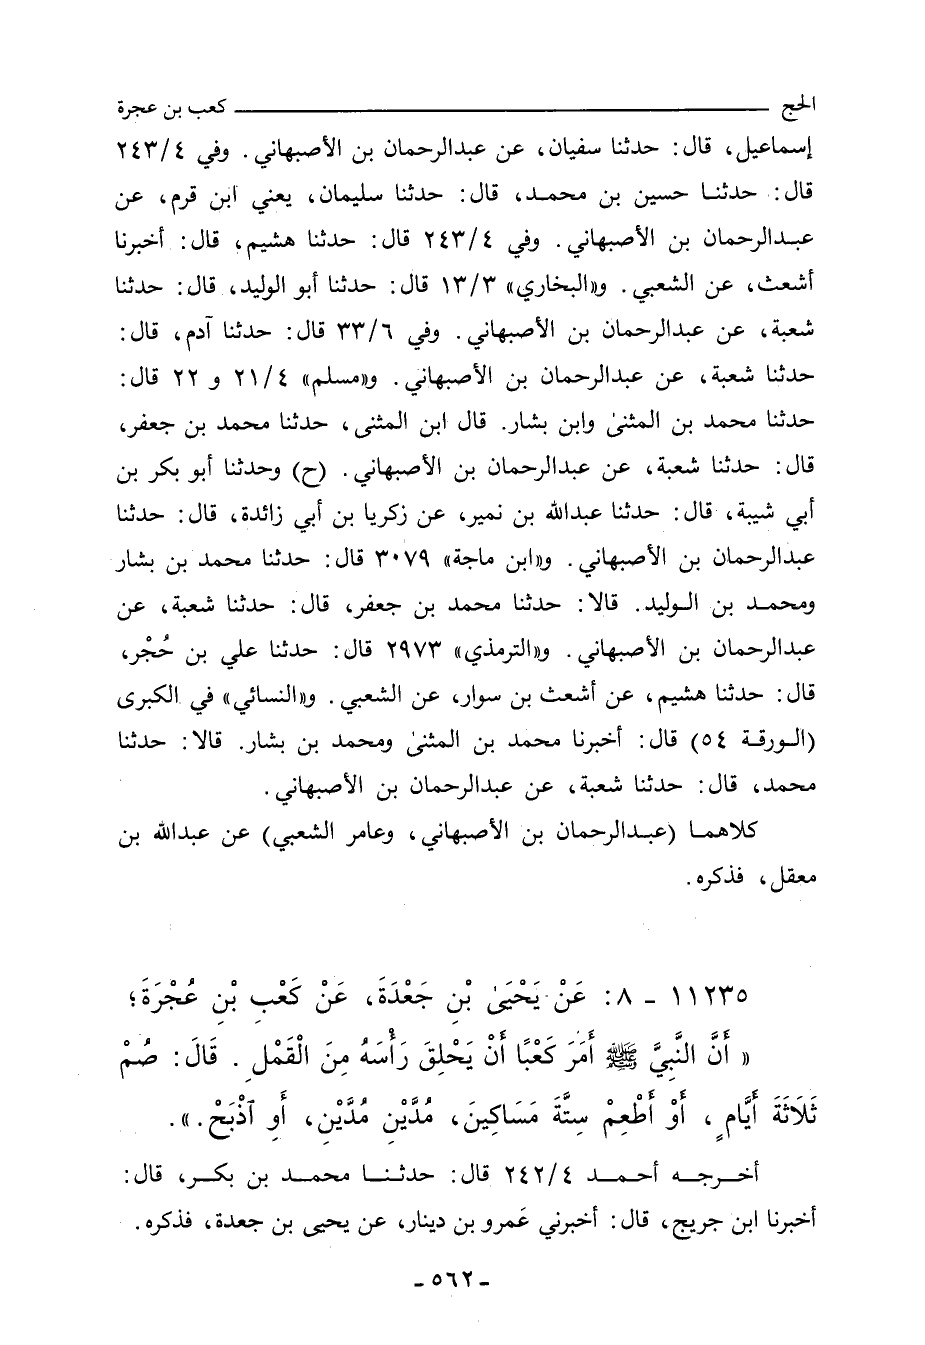 الحج ـــــــ كعب بن عجرة
إسماعيل، قال: حدثنا سفيان، عن عبدالرحمان بن الأصبهاني. وفي ٢٤٣/٤
قال: حدثنا حسين بن محمد، قال: حدثنا سليمان، يعني ابن قرم، عن
عبدالرحمان بن الأصبهاني. وفي ٢٤٣/٤ قال: حدثنا هشيم، قال: أخبرنا
أشعث، عن الشعبي. و«البخاري» ١٣/٣ قال: حدثنا أبو الوليد، قال: حدثنا
شعبة، عن عبدالرحمان بن الأصبهاني. وفي ٣٣/٦ قال: حدثنا آدم، قال:
حدثنا شعبة، عن عبدالرحمان بن الأصبهاني. و«مسلم» ٢١/٤ و ٢٢ قال:
حدثنا محمد بن المثنىٰ وابن بشار. قال ابن المثنى، حدثنا محمد بن جعفر،
قال: حدثنا شعبة، عن عبدالرحمان بن الأصبهاني. (ح) وحدثنا أبو بكر بن
أبي شيبة، قال: حدثنا عبدالله بن نمير، عن زكريا بن أبي زائدة، قال: حدثنا
عبدالرحمان بن الأصبهاني. و«ابن ماجة» ٣٠٧٩ قال: حدثنا محمد بن بشار
ومحمد بن الوليد. قالا: حدثنا محمد بن جعفر، قال: حدثنا شعبة، عن
عبدالرحمان بن الأصبهاني. و«الترمذي» ٢٩٧٣ قال: حدثنا علي بن حُجْر،
قال: حدثنا هشيم، عن أشعث بن سوار، عن الشعبي. و«النسائي» في الكبرى
(الورقة ٥٤) قال: أخبرنا محمد بن المثنىٰ ومحمد بن بشار. قالا: حدثنا
محمد، قال: حدثنا شعبة، عن عبدالرحمان بن الأصبهاني.
كلاهما (عبدالرحمان بن الأصبهاني، وعامر الشعبي) عن عبدالله بن
معقل، فذكره.
١١٢٣٥ - ٨: عَنْ يَحْيَىٰ بْنِ جَعْدَةَ، عَنْ كَعْبِ بْنِ عُجْرَةَ؛
« أَنَّ النَّبِيَّ ﷺ أَمَرَ كَعْبًا أَنْ يَحْلِقَ رَأْسَهُ مِنَ الْقَمْلِ. قَالَ: صُمْ
ثَلَاثَةَ أَيَّامٍ، أَوْ أَطْعِمْ سِتَّةَ مَسَاكِينَ، مُدَّيْنِ مُدَّيْنِ، أَوِ ٱذْبَحْ.».
أخرجه أحمد ٢٤٢/٤ قال: حدثنا محمد بن بكر، قال:
أخبرنا ابن جريج، قال: أخبرني عَمرو بن دينار، عن يحيى بن جعدة، فذكره.
- ٥٦٢ -